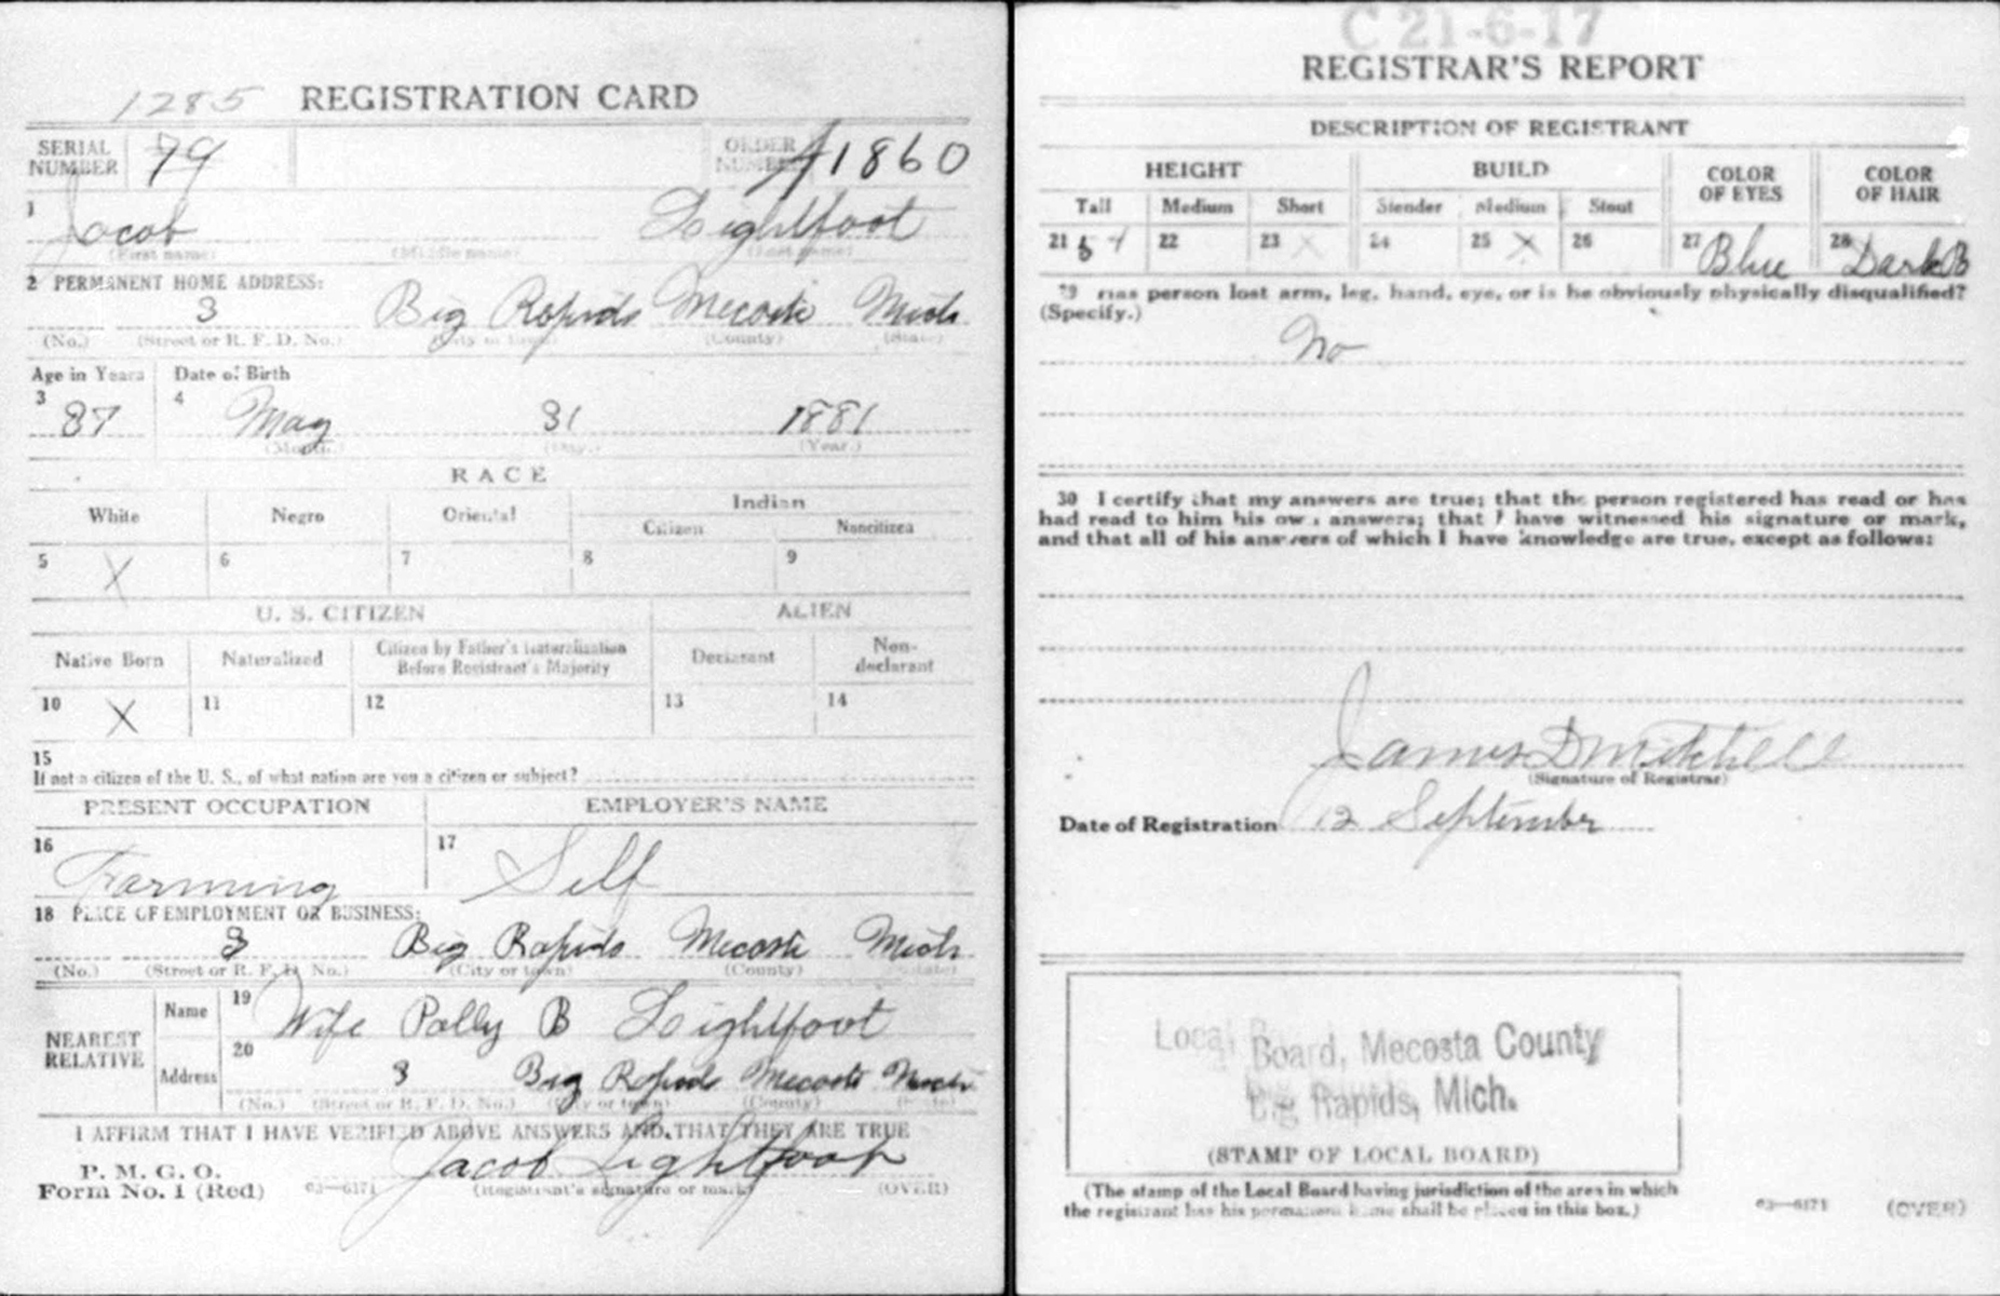 1285 REGISTRATION CARD
SERIAL NUMBER 79 ORDER NUMBER A1860
1 Jacob Lightfoot
(First name) (Middle name) (Last name)
2 PERMANENT HOME ADDRESS:
3 Big Rapids Mecosta Mich
(No.) (Street or R. F. D. No.) (City or town) (County) (State)
Age in Years Date of Birth
3 37 4 May 31 1881
(Month.) (Day.) (Year.)
RACE
White Negro Oriental Indian
Citizen Noncitizen
5 X 6 7 8 9
U. S. CITIZEN ALIEN
Native Born Naturalized Citizen by Father's Naturalization Before Registrant's Majority Declarant Non-declarant
10 X 11 12 13 14
15
If not a citizen of the U. S., of what nation are you a citizen or subject?
PRESENT OCCUPATION EMPLOYER'S NAME
16 Farming 17 Self
18 PLACE OF EMPLOYMENT OR BUSINESS:
3 Big Rapids Mecosta Mich
(No.) (Street or R. F. D. No.) (City or town) (County) (State)
NEAREST RELATIVE
Name 19 Wife Polly B Lightfoot
Address 20 3 Big Rapids Mecosta Mich
(No.) (Street or R. F. D. No.) (City or town) (County) (State)
I AFFIRM THAT I HAVE VERIFIED ABOVE ANSWERS AND THAT THEY ARE TRUE
P. M. G. O.
Form No. 1 (Red) 03—6171 Jacob Lightfoot
(Registrant's signature or mark) (OVER)
C 21-6-17
REGISTRAR'S REPORT
DESCRIPTION OF REGISTRANT
HEIGHT BUILD COLOR OF EYES COLOR OF HAIR
Tall Medium Short Slender Medium Stout
21 22 23 X 24 25 X 26 27 Blue 28 Dark B
29 Has person lost arm, leg, hand, eye, or is he obviously physically disqualified?
(Specify.)
No
30 I certify that my answers are true; that the person registered has read or has
had read to him his own answers; that I have witnessed his signature or mark,
and that all of his answers of which I have knowledge are true, except as follows:
James D Mitchell
(Signature of Registrar)
Date of Registration 12 September
Local Board, Mecosta County
Big Rapids, Mich.
(STAMP OF LOCAL BOARD)
(The stamp of the Local Board having jurisdiction of the area in which
the registrant has his permanent home shall be placed in this box.)
03—6171 (OVER)